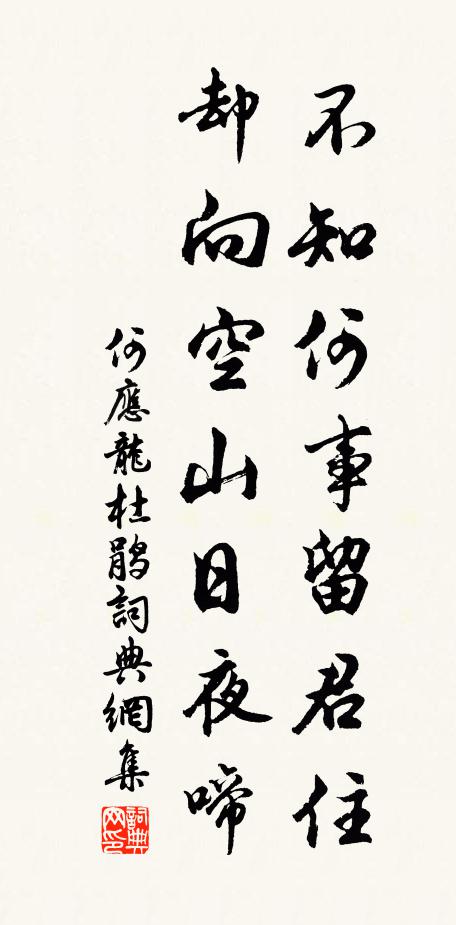 不知何事留君住
却向空山日夜啼
何應龍杜鵑詞典網集
詞典网印